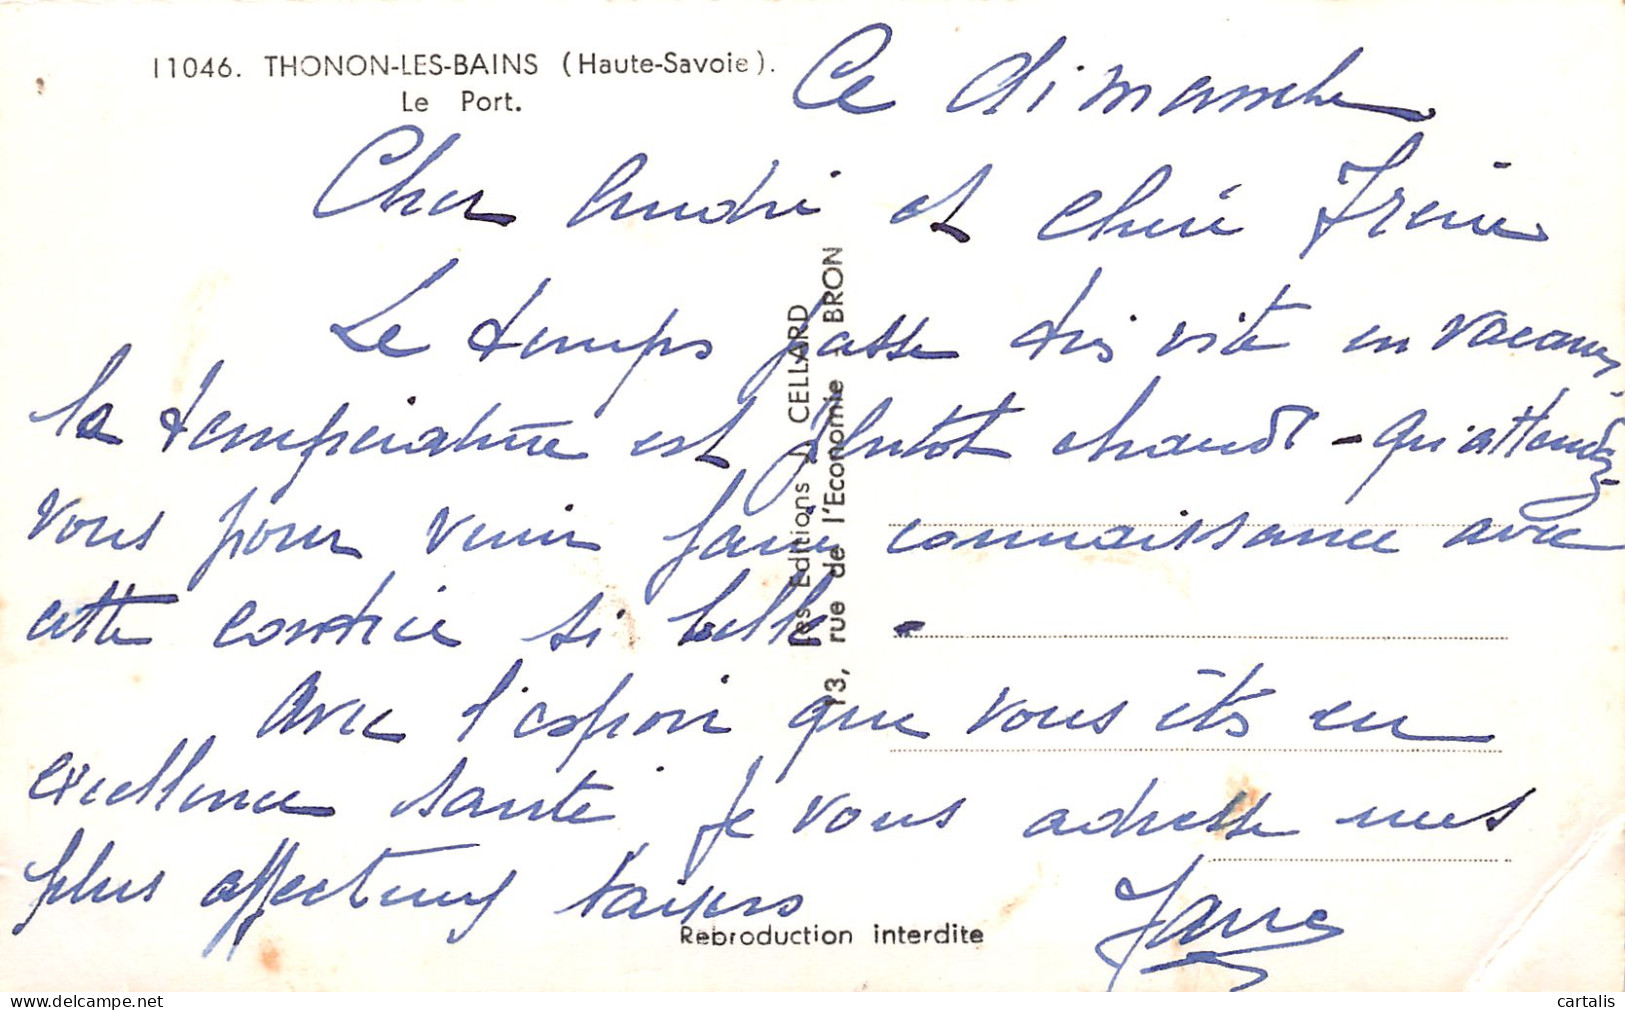 11046. THONON-LES-BAINS (Haute-Savoie).
Le Port.
Ce dimanche
Cher André et chère Irène
Le temps passe très vite en vacances,
la température est plutôt chaude - Qu'attendez-
vous pour venir faire connaissance avec
cette contrée si belle -
Avec l'espoir que vous êtes en
excellence santé je vous adresse mes
plus affectueux baisers
Les Editions J. CELLARD
13, rue de l'Economie - BRON
Reproduction interdite
cartalis